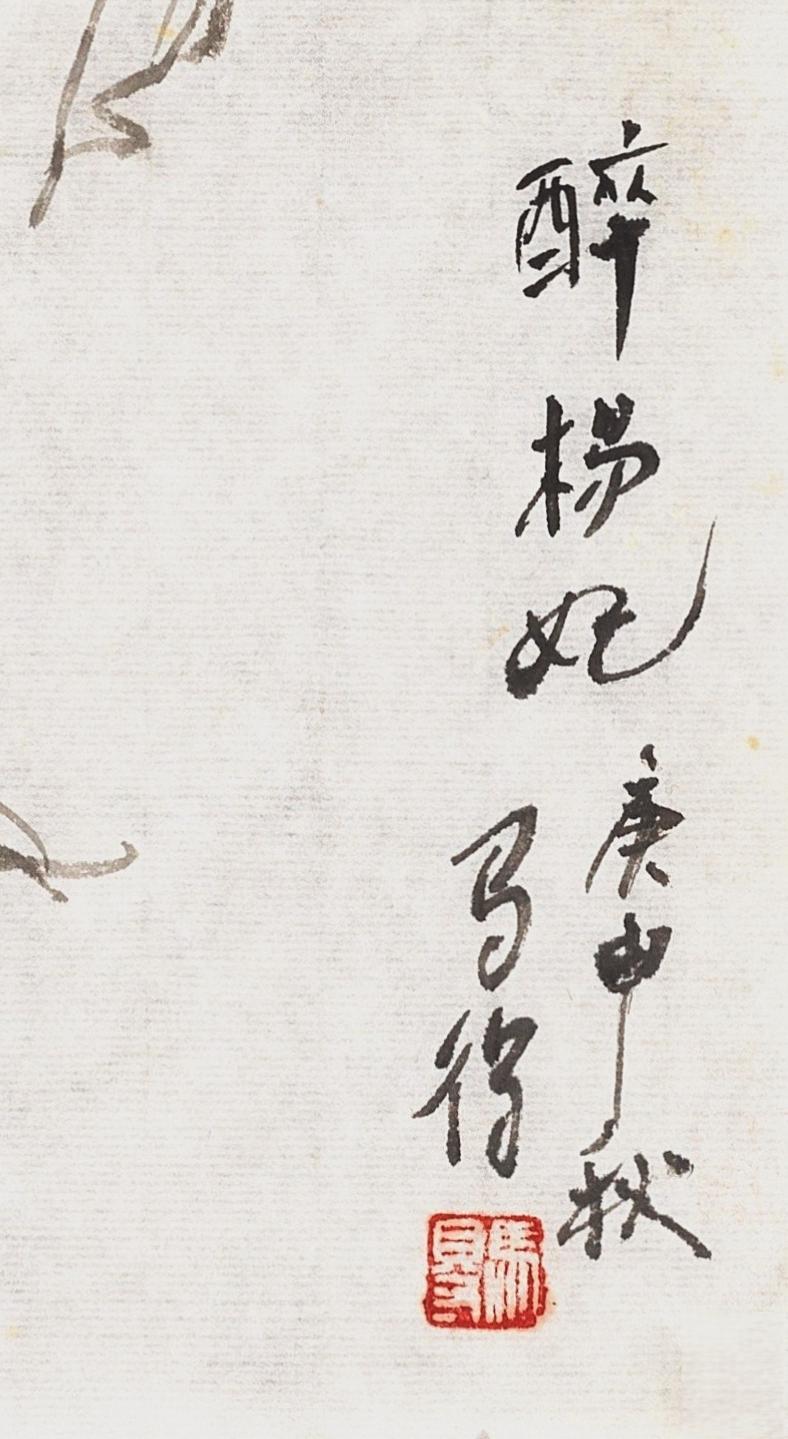 醉杨妃
庚申秋
马得
馬得